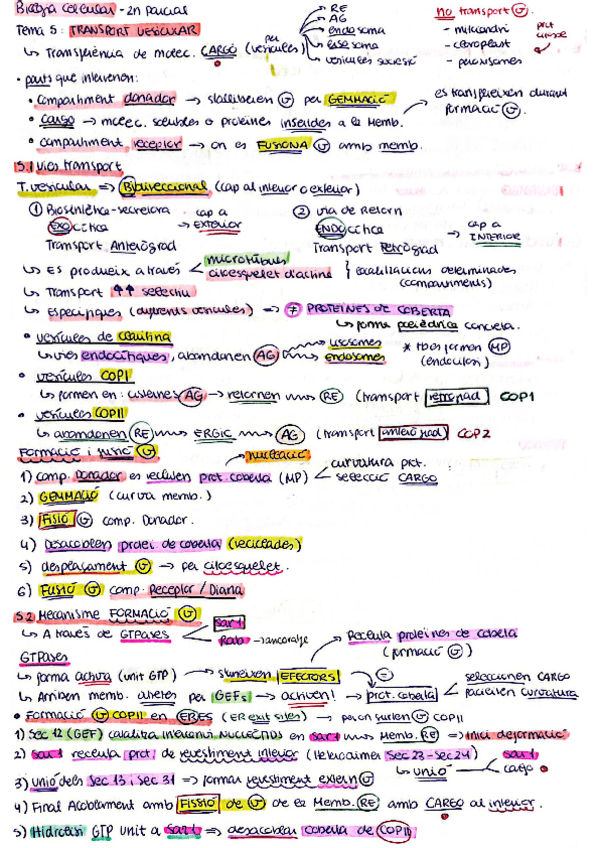 Biologia Cel·lular - 2n parcial
Tema 5: TRANSPORT VESICULAR
↳ Transferència de molec. CARGO (vesícules) per
RE
AG
endosoma
lisosoma
vesícules secreció
no transport Ⓥ.
- mitocondri
- cloroplast
- peroxisomes
• parts que intervenen:
• Compartiment donador → s'alliberen Ⓥ per GEMMACIÓ
• Cargo → molec. solubles o proteïnes inserides a la Memb.
es transfereixen durant formació Ⓥ.
• compartiment receptor → on es FUSIONA Ⓥ amb memb.
5.1 Vies transport
T. vesicular ⇒ Bidireccional (cap al interior o exterior)
① Biosintètica-secretora
EXOcítica
Transport Anterògrad
cap a
→ EXTERIOR
② via de retorn
ENDOcítica
Transport Retrògrad
→ cap a INTERIOR
↳ Es produeix a través
microtúbuls
citoesquelet d'actina
localitzacions determinades
(compartiments)
↳ Transport ↑↑ selectiu
↳ Específiques (diferents vesícules) → ≠ PROTEÏNES DE COBERTA
↳ forma polièdrica concreta.
• vesícules de clatrina
↳ vies endocítiques, abandonen AG
lisosomes
endosomes
* tbés formen MP
(endocitosi)
• vesícules COPI
↳ formen en: cisternes AG → retornen RE (transport retrògrad COP1
• vesícules COPII
↳ abandonen RE ERGIC AG (transport anterògrad) COP2
Formació i fusió Ⓥ
nucleació
1) comp. Donador es recluten prot. coberta (MP)
curvatura prot.
selecció CARGO
2) GEMMACIÓ (curva memb.)
3) FISIÓ Ⓥ comp. Donador.
4) Desacoblen protei de coberta (reciclades)
5) desplaçament Ⓥ → per citoesquelet.
6) Fusió Ⓥ comp. Receptor / Diana
5.2 Mecanisme FORMACIÓ Ⓥ
↳ A través de GTPases
Sar1
Rab → ancoratge
Recluta proteïnes de coberta
(formació Ⓥ)
GTPases
↳ forma activa (unit GTP) → s'uneixen EFECTORS
↳ Arriben memb. diana per GEFs → activen! → prot. coberta
seleccionen CARGO
faciliten curvatura
• Formació Ⓥ COPII en ERES (ER exit sites) → per on surten Ⓥ COPII
1) Sec 12 (GEF) catalitza intercanvi NUCLEÒTIDS en sar1 Memb. RE ⇒ inici de formació
2) sar1 recluta prot. de revestiment interior (Heterodímer Sec 23 - Sec 24)
↳ unió
sar1
cargo
3) Unió dels Sec 13 i Sec 31 → formar revestiment extern Ⓥ
4) Final Acoblament amb FISSIÓ de Ⓥ de la Memb. RE amb CARGO al interior.
5) Hidròlisi GTP unit a sar1 ⇒ desacoblar coberta de COPII